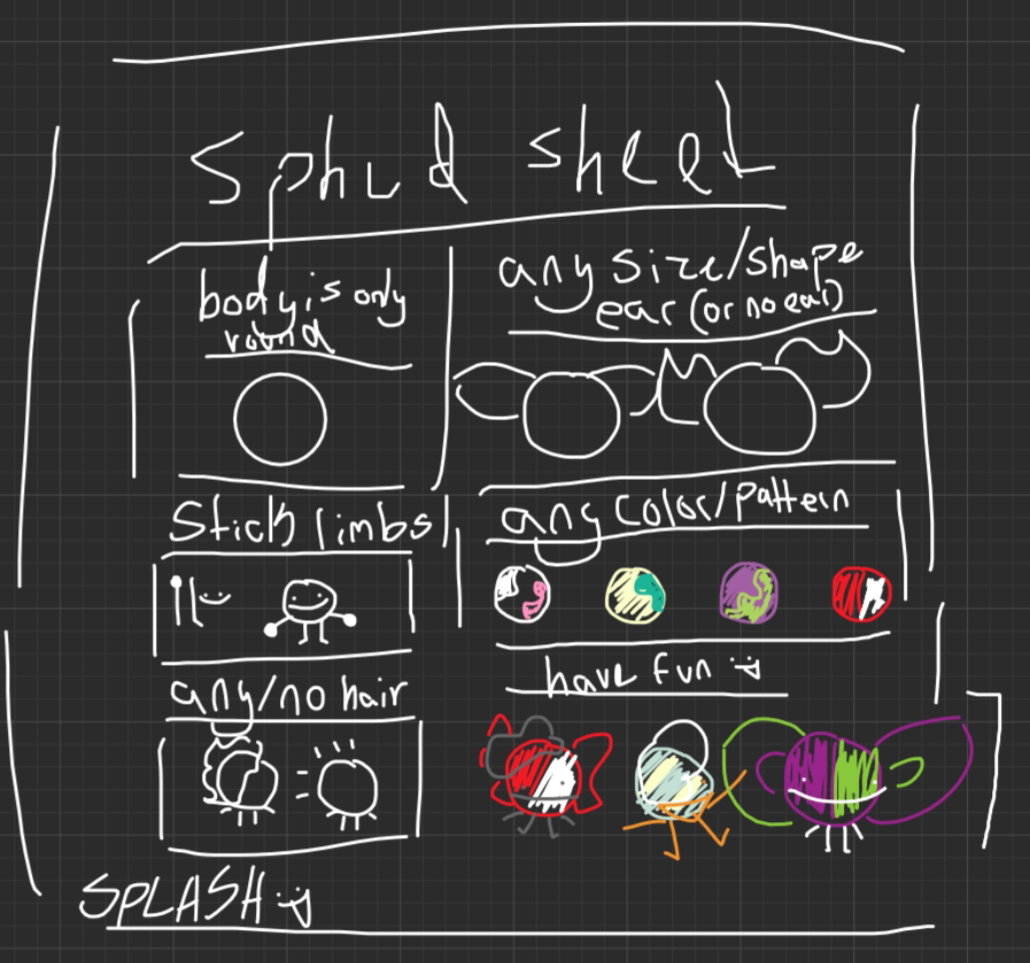 Sphud sheet
body is only
round
any size/shape
ear (or no ear)
Stick limbs
any color/pattern
any/no hair
have fun :)
SPLASH :)